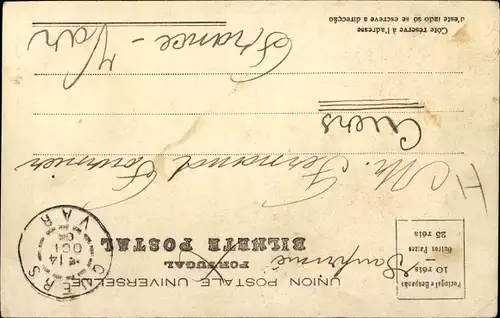 UNION POSTALE UNIVERSELLE
PORTUGAL
BILHETE POSTAL
Portugal e Hespanha
10 réis
Outros Paizes
25 réis
CUERS
14
OCT
VAR
Mr. Fernand Fournier
Cuers
France - Var
Côté réservé à l'adresse
d'este lado só se escreve a direcção